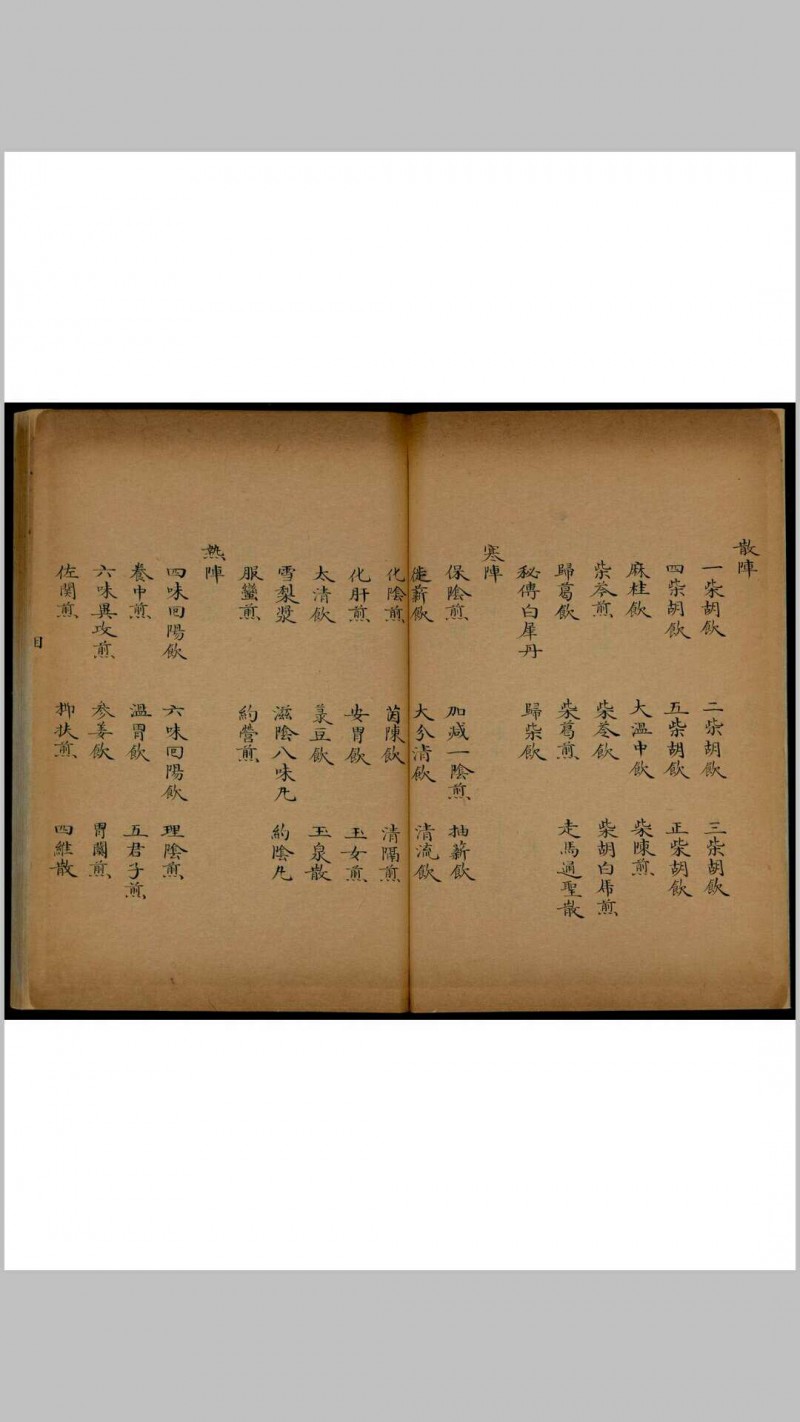 散陣
一柴胡飲 二柴胡飲 三柴胡飲
四柴胡飲 五柴胡飲 正柴胡飲
麻桂飲 大溫中飲 柴陳煎
柴芩煎 柴苓飲 柴胡白虎煎
歸葛飲 柴葛煎 走馬通聖散
秘傳白犀丹 歸柴飲
寒陣
保陰煎 加減一陰煎 抽薪飲
徙薪飲 大分清飲 清流飲
化陰煎 茵陳飲 清隔煎
化肝煎 安胃飲 玉女煎
太清飲 菉豆飲 玉泉散
雪梨漿 滋陰八味丸 約陰丸
服蠻煎 約營煎
熱陣
四味回陽飲 六味回陽飲 理陰煎
養中煎 溫胃飲 五君子煎
六味異攻煎 參姜飲 胃關煎
佐關煎 抑扶煎 四維散
目